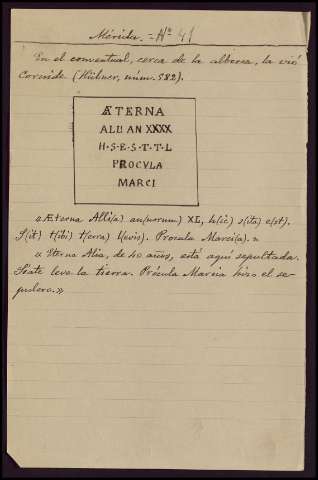 Mérida. = Nº 41
En el conventual, cerca de la alberca, la vió
Cornide (Hübner, núm. 582).
ÆTERNA
ALLI AN XXXX
H·S·E·S·T·T·L
PROCVLA
MARCI
«Æterna Alli(a) an(norum) XL, h(ic) s(ita) e(st).
S(it) t(ibi) t(erra) l(evis). Procula Marci(a).»
«Eterna Alia, de 40 años, está aquí sepultada.
Séate leve la tierra. Prócula Marcia hizo el se-
pulcro.»